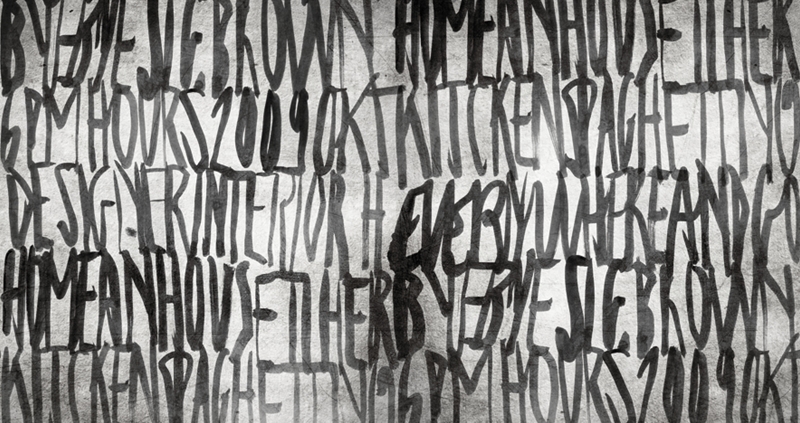 BYEBYE SIE BROWN HOME AN HOUSE ETHER
6 PM HOURS 2009 OKT KITCKEN SPAGHETTI YO
DESIGNER INTERIOR H EVERBYWHERE AND GO
HOME AN HOUSE ETHER BYEBYE SIE BROWN
KITCKEN SPAGHETTI YO 6 PM HOURS 2009 OKT